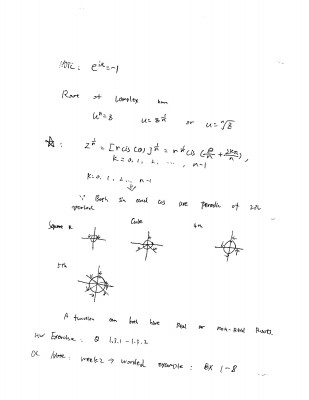 NOTE: e^{iπ} = -1
Root of complex num
u^n = z   u = z^{1/n}   or   u = ⁿ√z
☆: z^{1/n} = [r cis (θ)]^{1/n} = r^{1/n} cis (θ/n + 2kπ/n),
k = 0, 1, 2, ..., n-1
k = 0, 1, 2 ... n-1
∵ Both sin and cos are periodic of 2π
period
Square R   Cube   4th
5th
A function can both have real or non-real Roots
HW Exercise: Q 1.3.1 - 1.3.2
Note: week 2 → worded example: EX 1-8